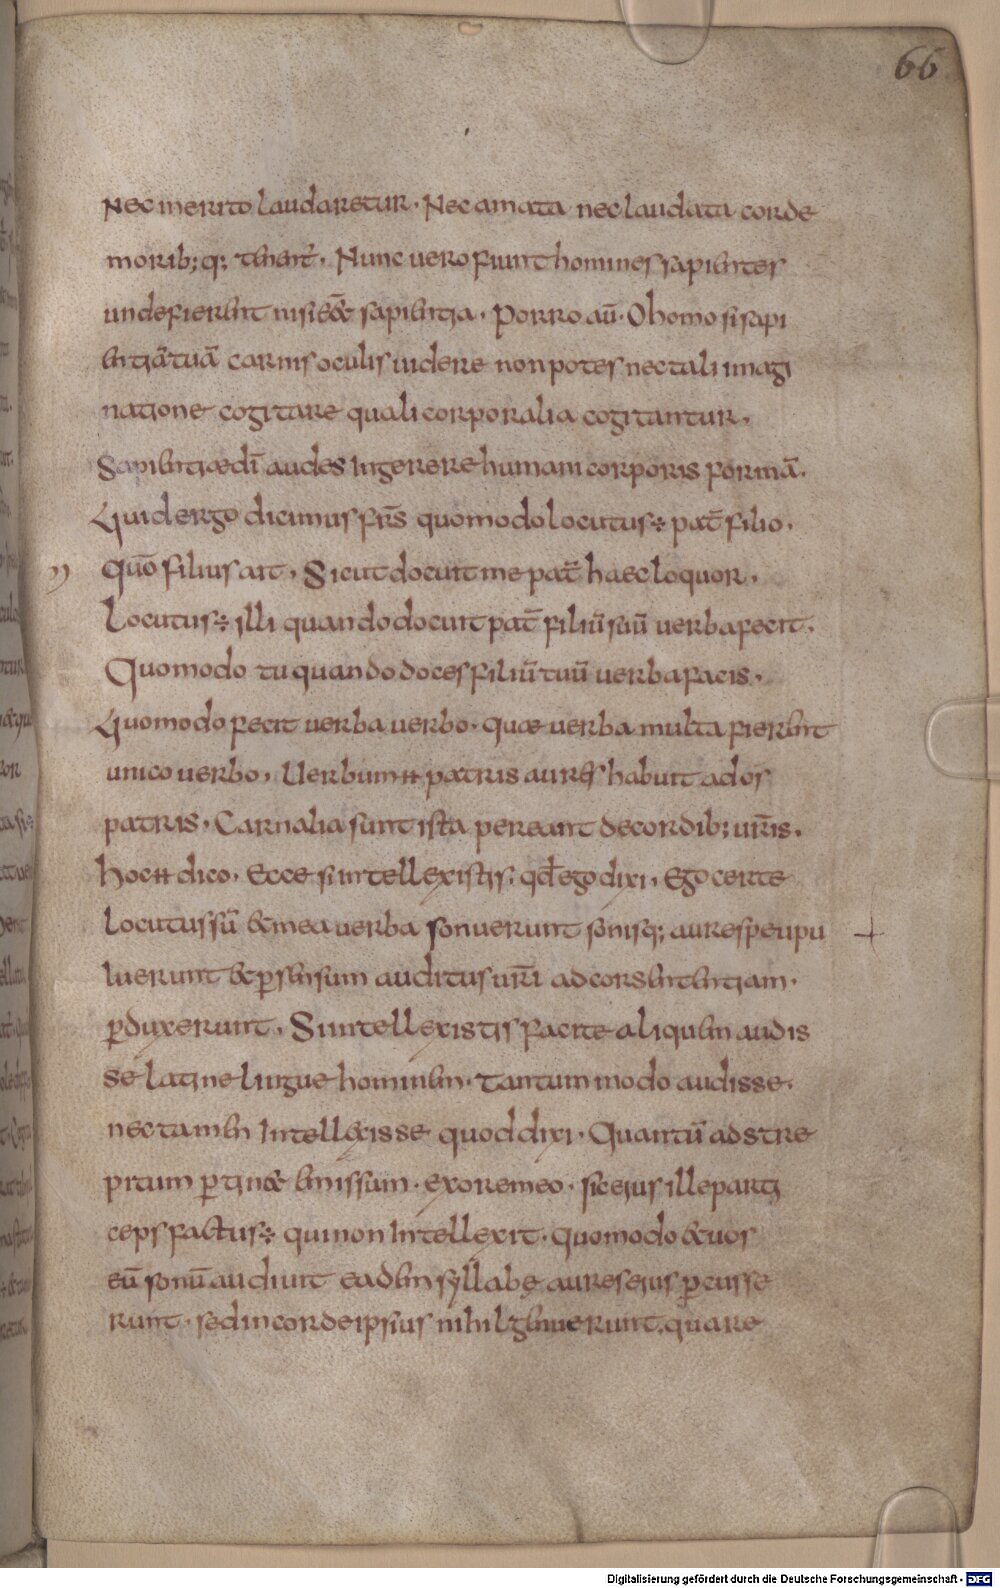 66
nec merito laudaretur. Nec amata nec laudata corde
morib;q; teneret̄. Nunc uero fiunt homines sapientes
unde fierent nisi eēt sapientia. Porro aū. O homo si sapi
entiā tuā carnis oculis uidere non potes nec tali imagi
natione cogitare quali corporalia cogitantur.
Sapientiae dī audes ingerere humani corporis formā.
Quid ergo dicimus frs̄ quomodo locutus ÷ pat̄ filio.
Quō filius ait. Sicut docuit me pat̄ haec loquor.
Locutus ÷ illi quando docuit pat̄ filiū suū uerba fecit.
Quomodo tu quando doces filiū tuū uerba facis.
Quomodo fecit uerba uerbo. quae uerba multa fierent
unico uerbo. Uerbum ++ patris aures habuit ad os
patris. Carnalia sunt ista pereant decordib; uris̄.
hoc ++ dico. Ecce si intellexistis. qd̄ ego dixi. Ego certe
locutus sū & mea uerba sonuerunt sonisq; aures peupu
luerunt & p̱ sensum auditus urī ad cors ententiam.
p̱duxerunt. Si intellexistis facite aliquem audis
se latine lingue hominem. tantum modo audisse.
nec tamen intellexisse quod dixi. Quantū ad stre
pitum p̱tin& emissum. ex ore meo. sic eius ille parti
ceps factus ÷ qui non intellexit. quomodo & uos
eū sonū audiuit eadem syllabę aures eius p̱cusse
runt. sed in corde ipsius nihil genuerunt. quare
Digitalisierung gefördert durch die Deutsche Forschungsgemeinschaft - DFG